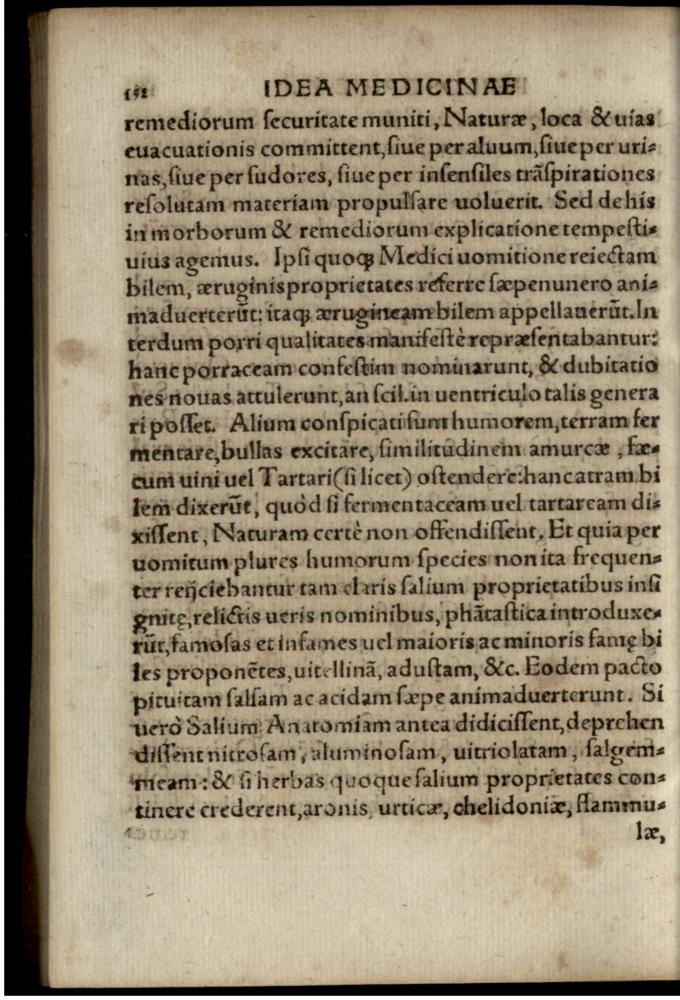 192 IDEA MEDICINAE
remediorum ſecuritate muniti, Naturæ, loca & uias
euacuationis committent, ſiue per aluum, ſiue per uri-
nas, ſiue per ſudores, ſiue per inſenſiles trãſpirationes
reſolutam materiam propulſare uoluerit. Sed de his
in morborum & remediorum explicatione tempeſti-
uius agemus. Ipſi quoqꝫ Medici uomitione reiectam
bilem, æruginis proprietates referre ſæpenunero ani-
maduerterũt: itaqꝫ ærugineam bilem appellauerũt. In
terdum porri qualitates manifeſtè repræſentabantur:
hanc porraceam confeſtim nominarunt, & dubitatio
nes nouas attulerunt, an ſcil. in uentriculo talis genera
ri poſſet. Alium conſpicati ſunt humorem, terram fer
mentare, bullas excitare, ſimilitudinem amurcæ, fæ-
cum uini uel Tartari (ſi licet) oſtendere: hanc atram bi
lem dixerũt, quòd ſi fermentaceam uel tartaream di-
xiſſent, Naturam certè non offendiſſent. Et quia per
uomitum plures humorum ſpecies non ita frequen-
ter reijciebantur tam claris ſalium proprietatibus inſi
gnitę, relictis ueris nominibus, phãtaſtica introduxe-
rũt, famoſas et infames uel maioris ac minoris famę bi
les proponẽtes, uitellinã, aduſtam, &c. Eodem pacto
pituitam ſalſam ac acidam ſæpe animaduerterunt. Si
uerò Salium Anatomiam antea didiciſſent, deprehen
diſſent nitroſam, aluminoſam, uitriolatam, ſalgem-
meam: & ſi herbas quoque ſalium proprietates con-
tinere crederent, aronis, urticæ, chelidoniæ, flammu-
læ,